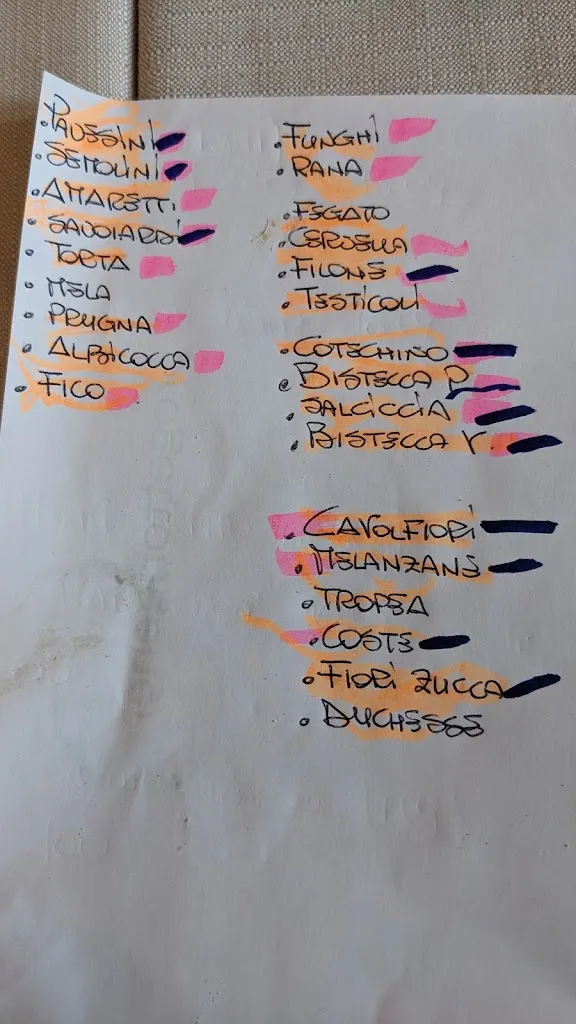 • PAVESINI
• SEMOLINI
• AMARETTI
• SAVOIARDI
• TORTA
• MELA
• PRUGNA
• ALBICOCCA
• FICO
• FUNGHI
• RANA
• FEGATO
• CERVELLA
• FILONE
• TESTICOLI
• COTECHINO
• BISTECCA P.
• SALCICCIA
• BISTECCA V.
• CAVOLFIORI
• MELANZANE
• TROPEA
• COSTE
• FIORI ZUCCA
• DUCHESSE